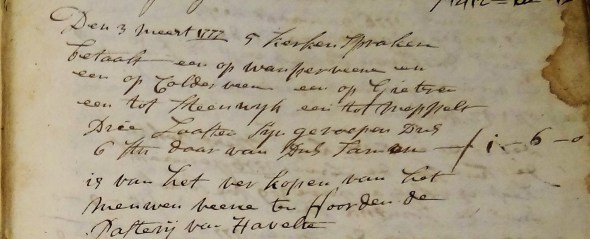 Den 3 meert 1777 5 kerken spraken
betaalt een op wanperveene en
een op Colderveen een op Gieteren
een tot Steenwyk een tot meppelt
Drie Laasten syn geroepen Dus
6 st daar van Dus Samen — f 1 - 6 - 0
is van het ver kopen van het
nieuwen veene te Hoorden de
Pasterij van Havelte